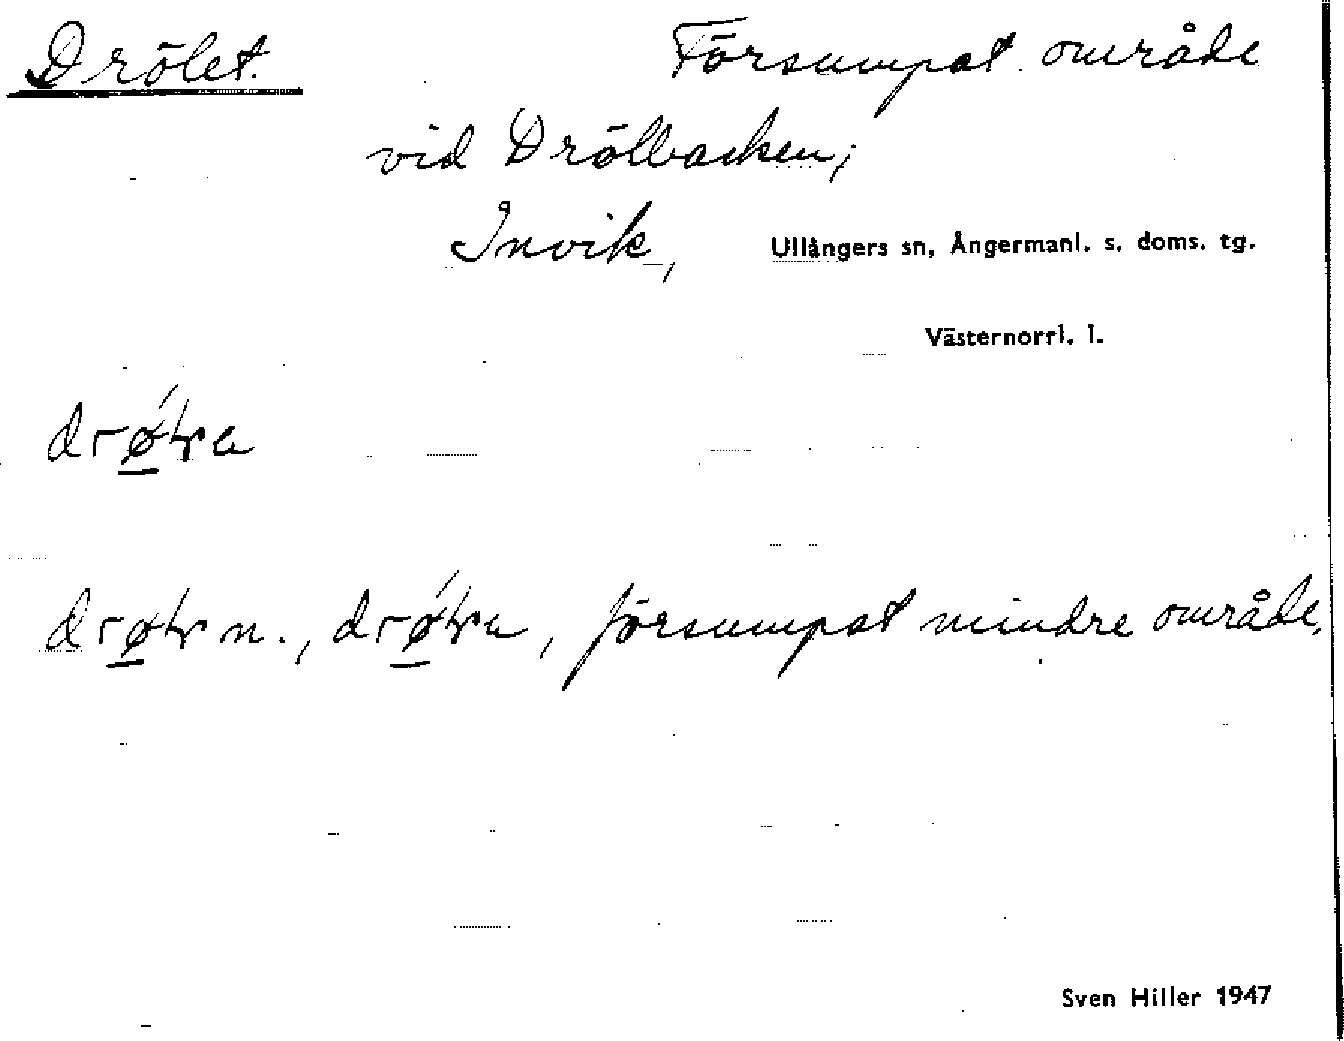 Drölet. Försumpat område
vid Drölbacken;
Invik, Ullångers sn, Ångermanl. s. doms. tg.
Västernorrl. l.
n., försumpat mindre område.
Sven Hiller 1947